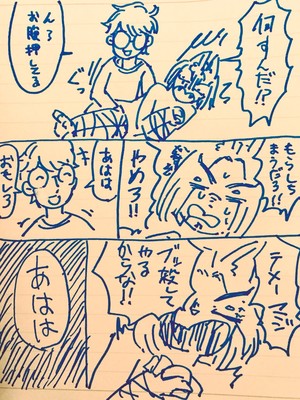 何すんだ!?
お腹押してる
もうしち
まうだろ!!
やめろ!!
あはは
おもしろ
テメー
マジ
ブッ殺して
やる
からな!!
あはは